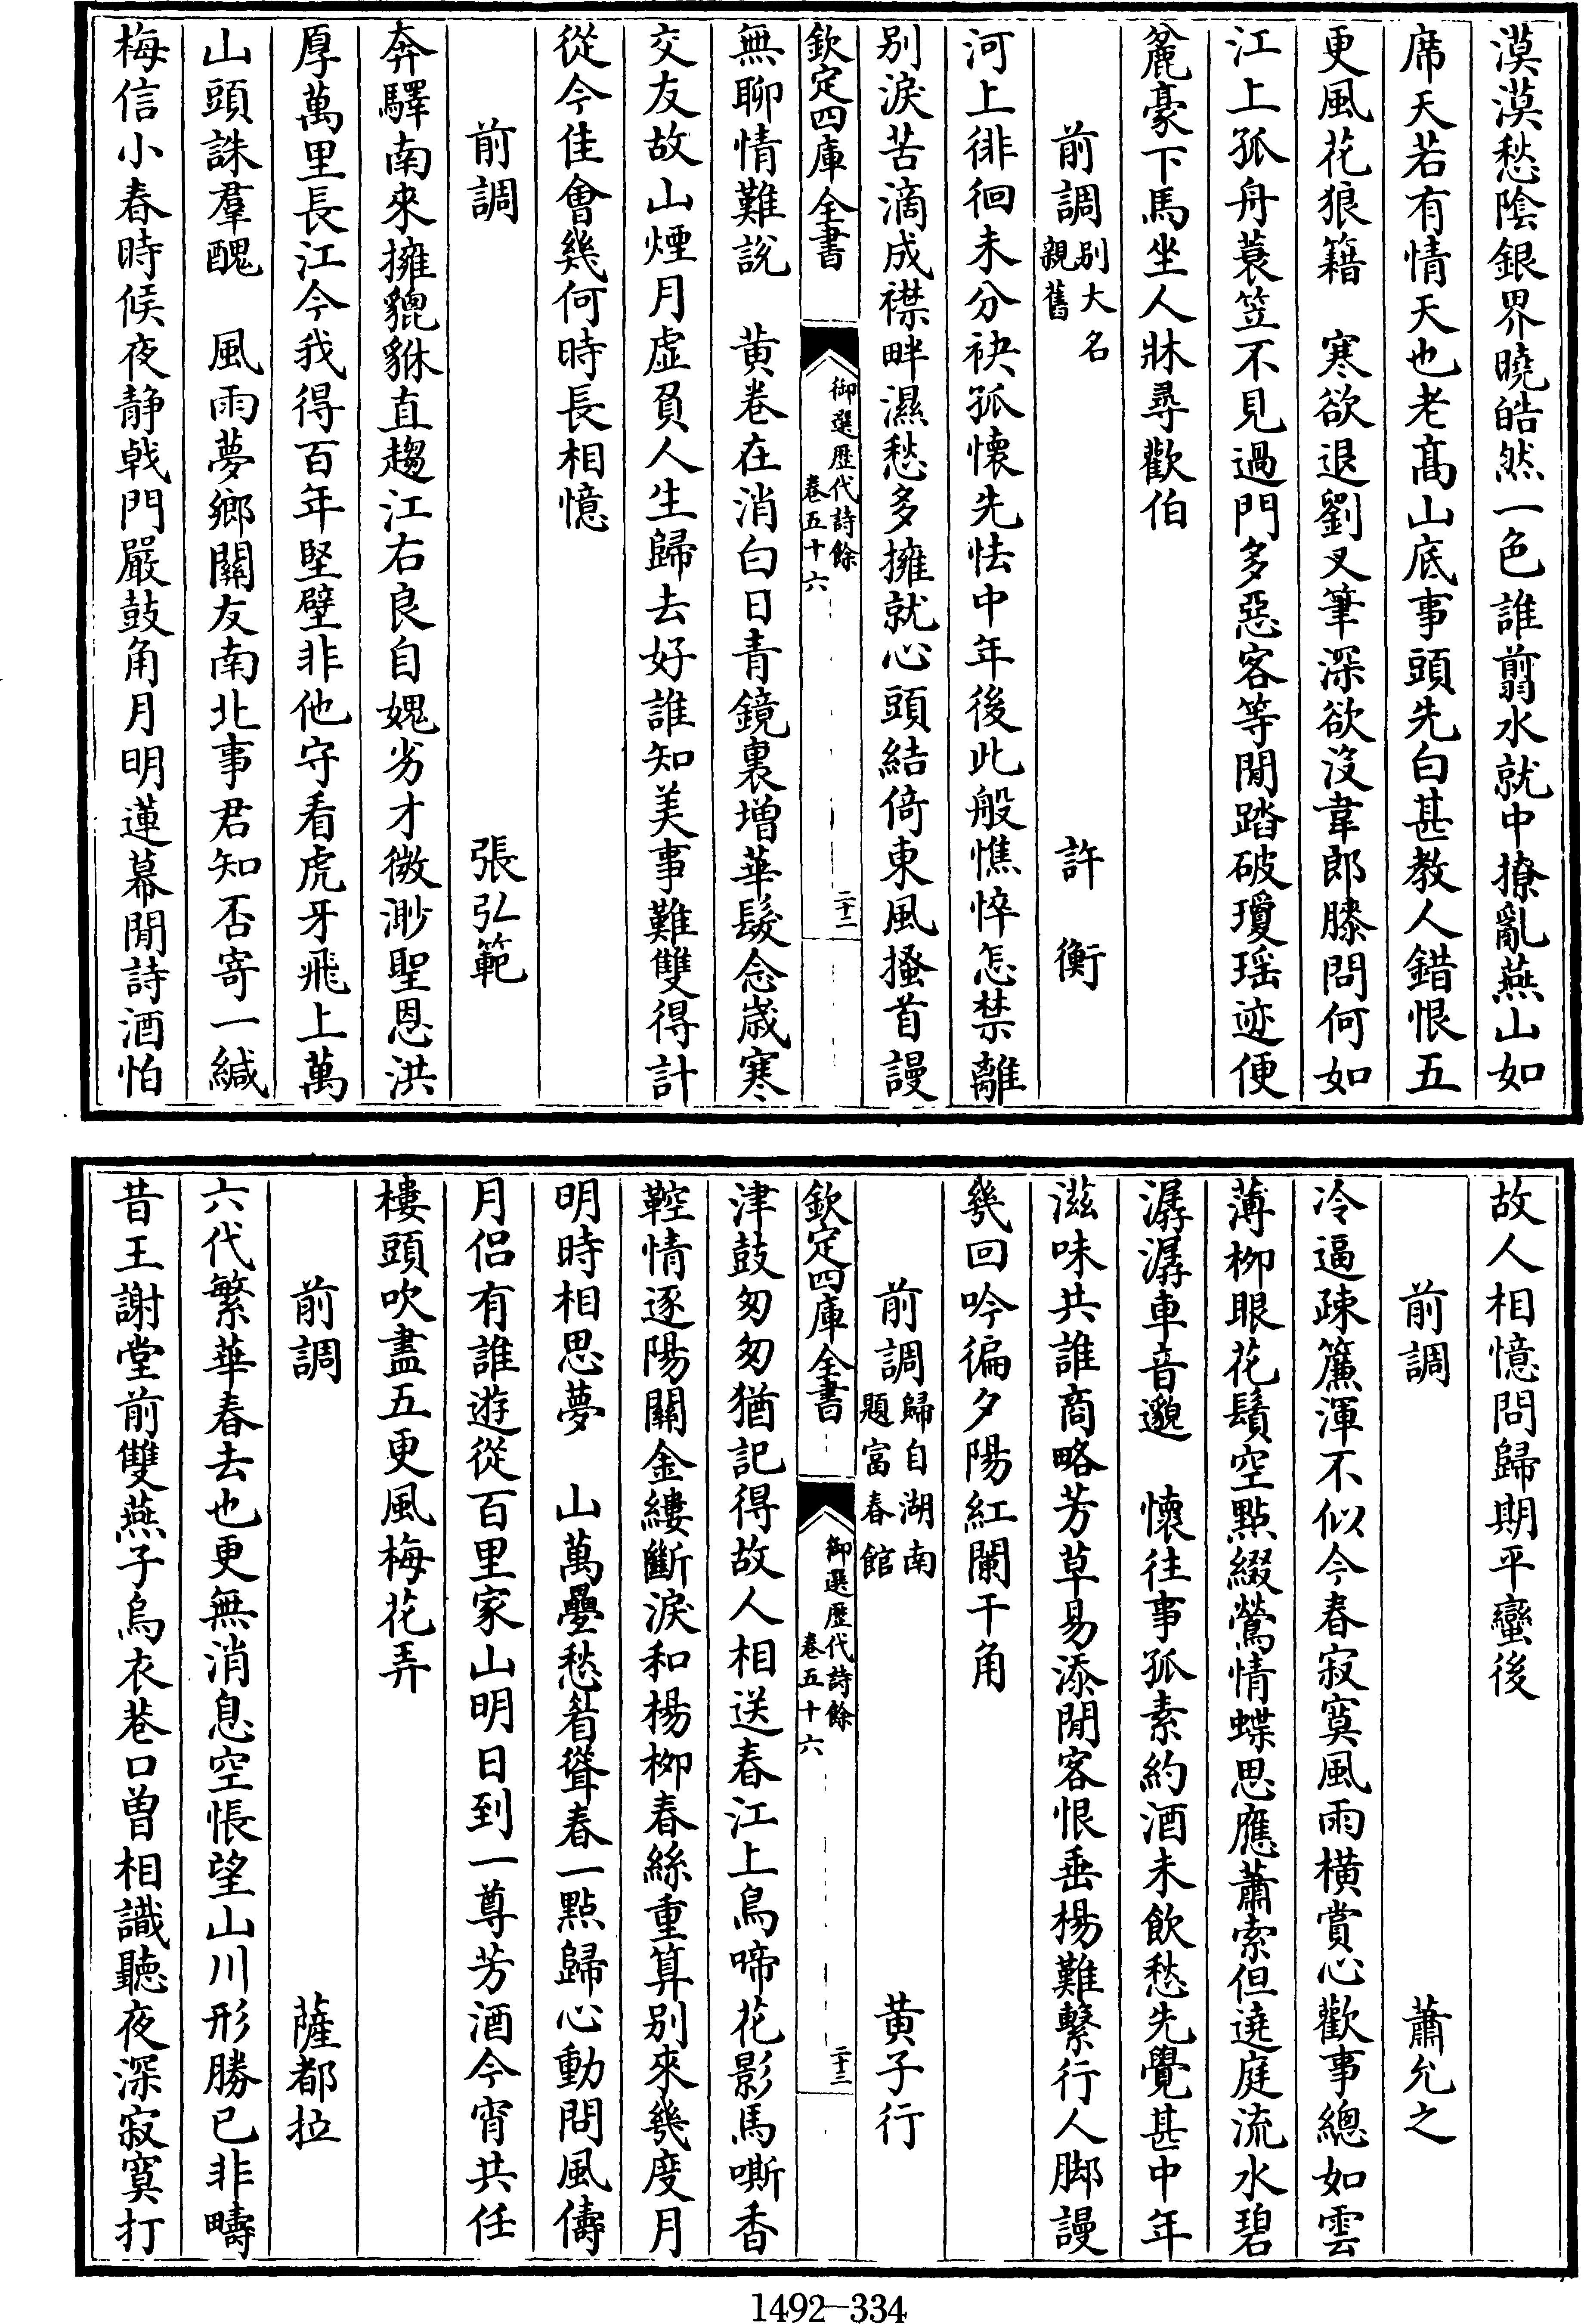 漠漠愁陰銀界曉皓然一色誰翦水就中撩亂燕山如
席天若有情天也老髙山底事頭先白甚教人錯恨五
更風花狼籍　寒欲退劉叉筆深欲沒韋郎膝問何如
江上孤舟蓑笠不見過門多惡客等閒踏破瓊瑶迹便
麄豪下馬坐人牀尋歡伯
前調別大名親舊　許衡
河上徘徊未分袂孤懐先怯中年後此般憔悴怎禁離
別淚苦滴成襟畔濕愁多擁就心頭結倚東風搔首謾
欽定四庫全書　御選歴代詩餘卷五十六　二十二
無聊情難説　黄卷在消白日青鏡裏増華髮念嵗寒
交友故山煙月虛負人生歸去好誰知美事難雙得計
從今佳會幾何時長相憶
前調　張弘範
奔驛南來擁貔貅直趨江右良自媿劣才微渺聖恩洪
厚萬里長江今我得百年堅壁非他守看虎牙飛上萬
山頭誅羣醜　風雨夢鄉關友南北事君知否寄一緘
梅信小春時候夜静㦸門嚴鼓角月明蓮幕閒詩酒怕
故人相憶問歸期平蠻後
前調　蕭允之
冷逼疎簾渾不似今春寂寞風雨橫賞心歡事總如雲
薄柳眼花鬚空點綴鶯情蝶思應蕭索但遶庭流水碧
潺潺車音邈　懐往事孤素約酒未飲愁先覺甚中年
滋味共誰商略芳草易添閒客恨垂楊難繫行人脚謾
幾回吟徧夕陽紅闌干角
前調歸自湖南題富春館　黄子行
欽定四庫全書　御選歴代詩餘卷五十六　二十三
津鼓匆匆猶記得故人相送春江上鳥啼花影馬嘶香
鞚情逐陽關金縷斷淚和楊柳春絲重算別來幾度月
明時相思夢　山萬疊愁眉聳春一點歸心動問風儔
月侣有誰遊從百里家山明日到一尊芳酒今宵共任
樓頭吹盡五更風梅花弄
前調　薩都拉
六代繁華春去也更無消息空悵望山川形勝已非疇
昔王謝堂前雙燕子烏衣巷口曽相識聽夜深寂寞打
1492—334